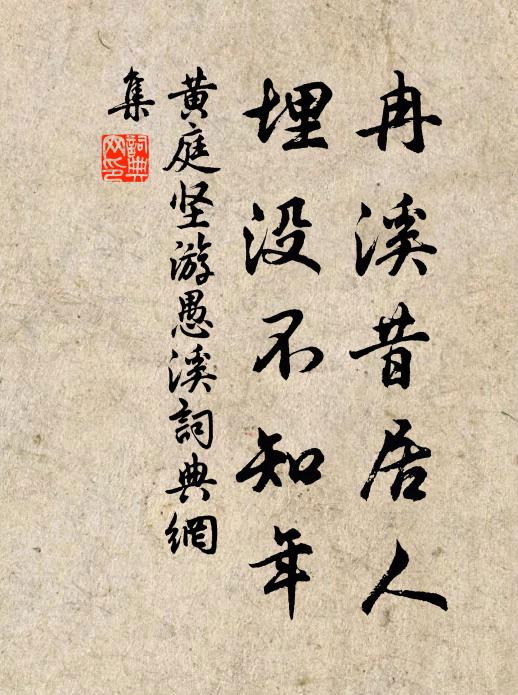 冉溪昔居人
埋没不知年
黄庭坚游愚溪詞典網
集
詞典
网印